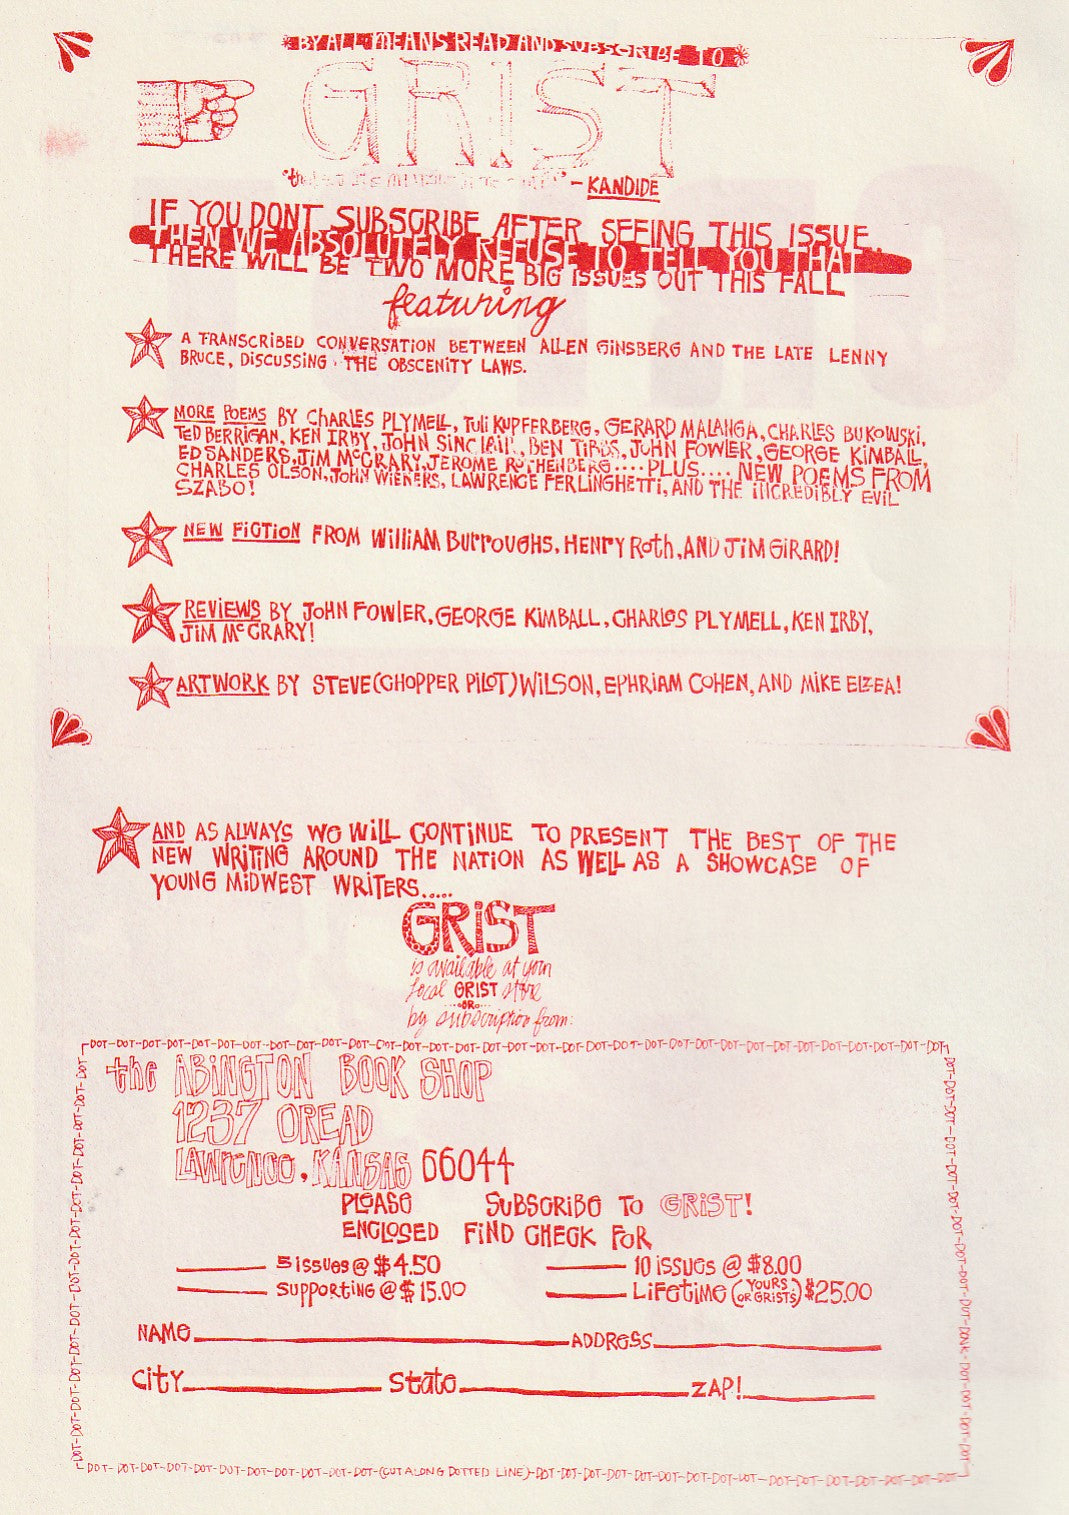 *BY ALL MEANS READ AND SUBSCRIBE TO*
GRIST
- KANDIDE
IF YOU DONT SUBSCRIBE AFTER SEEING THIS ISSUE
THEN WE ABSOLUTELY REFUSE TO TELL YOU THAT
THERE WILL BE TWO MORE BIG ISSUES OUT THIS FALL
featuring
A TRANSCRIBED CONVERSATION BETWEEN ALLEN GINSBERG AND THE LATE LENNY
BRUCE, DISCUSSING THE OBSCENITY LAWS.
MORE POEMS BY CHARLES PLYMELL, TULI KUPFERBERG, GERARD MALANGA, CHARLES BUKOWSKI,
TED BERRIGAN, KEN IRBY, JOHN SINCLAIR, BEN TIBBS, JOHN FOWLER, GEORGE KIMBALL,
ED SANDERS, JIM McCRARY, JEROME ROTHENBERG....PLUS.... NEW POEMS FROM
CHARLES OLSON, JOHN WIENERS, LAWRENCE FERLINGHETTI, AND THE INCREDIBLY EVIL
SZABO!
NEW FICTION FROM WILLIAM BURROUGHS, HENRY ROTH, AND JIM GIRARD!
REVIEWS BY JOHN FOWLER, GEORGE KIMBALL, CHARLES PLYMELL, KEN IRBY,
JIM McCRARY!
ARTWORK BY STEVE (CHOPPER PILOT) WILSON, EPHRIAM COHEN, AND MIKE ELZEA!
AND AS ALWAYS WE WILL CONTINUE TO PRESENT THE BEST OF THE
NEW WRITING AROUND THE NATION AS WELL AS A SHOWCASE OF
YOUNG MIDWEST WRITERS.....
GRIST
is available at your
local GRIST store
...OR...
by subscription from:
DOT-DOT-DOT-DOT-DOT-DOT-DOT-DOT-DOT-DOT-DOT-DOT-DOT-DOT-DOT-DOT-DOT-DOT-DOT-DOT-DOT-DOT-DOT-DOT-DOT-DOT-DOT-DOT-DOT-DOT-DOT-DOT-DOT
the ABINGTON BOOK SHOP
1237 OREAD
LAWRENCE, KANSAS 66044
PLEASE SUBSCRIBE TO GRIST!
ENCLOSED FIND CHECK FOR
5 ISSUES @ $4.50 10 ISSUES @ $8.00
SUPPORTING @ $15.00 LIFETIME (YOURS OR GRISTS) $25.00
NAME ADDRESS
CITY STATE ZAP!
DOT-DOT-DOT-DOT-DOT-DOT-DOT-DOT-DOT-DOT-DOT-(CUT ALONG DOTTED LINE)-DOT-DOT-DOT-DOT-DOT-DOT-DOT-DOT-DOT-DOT-DOT-DOT-DOT-DOT-DOT-DOT